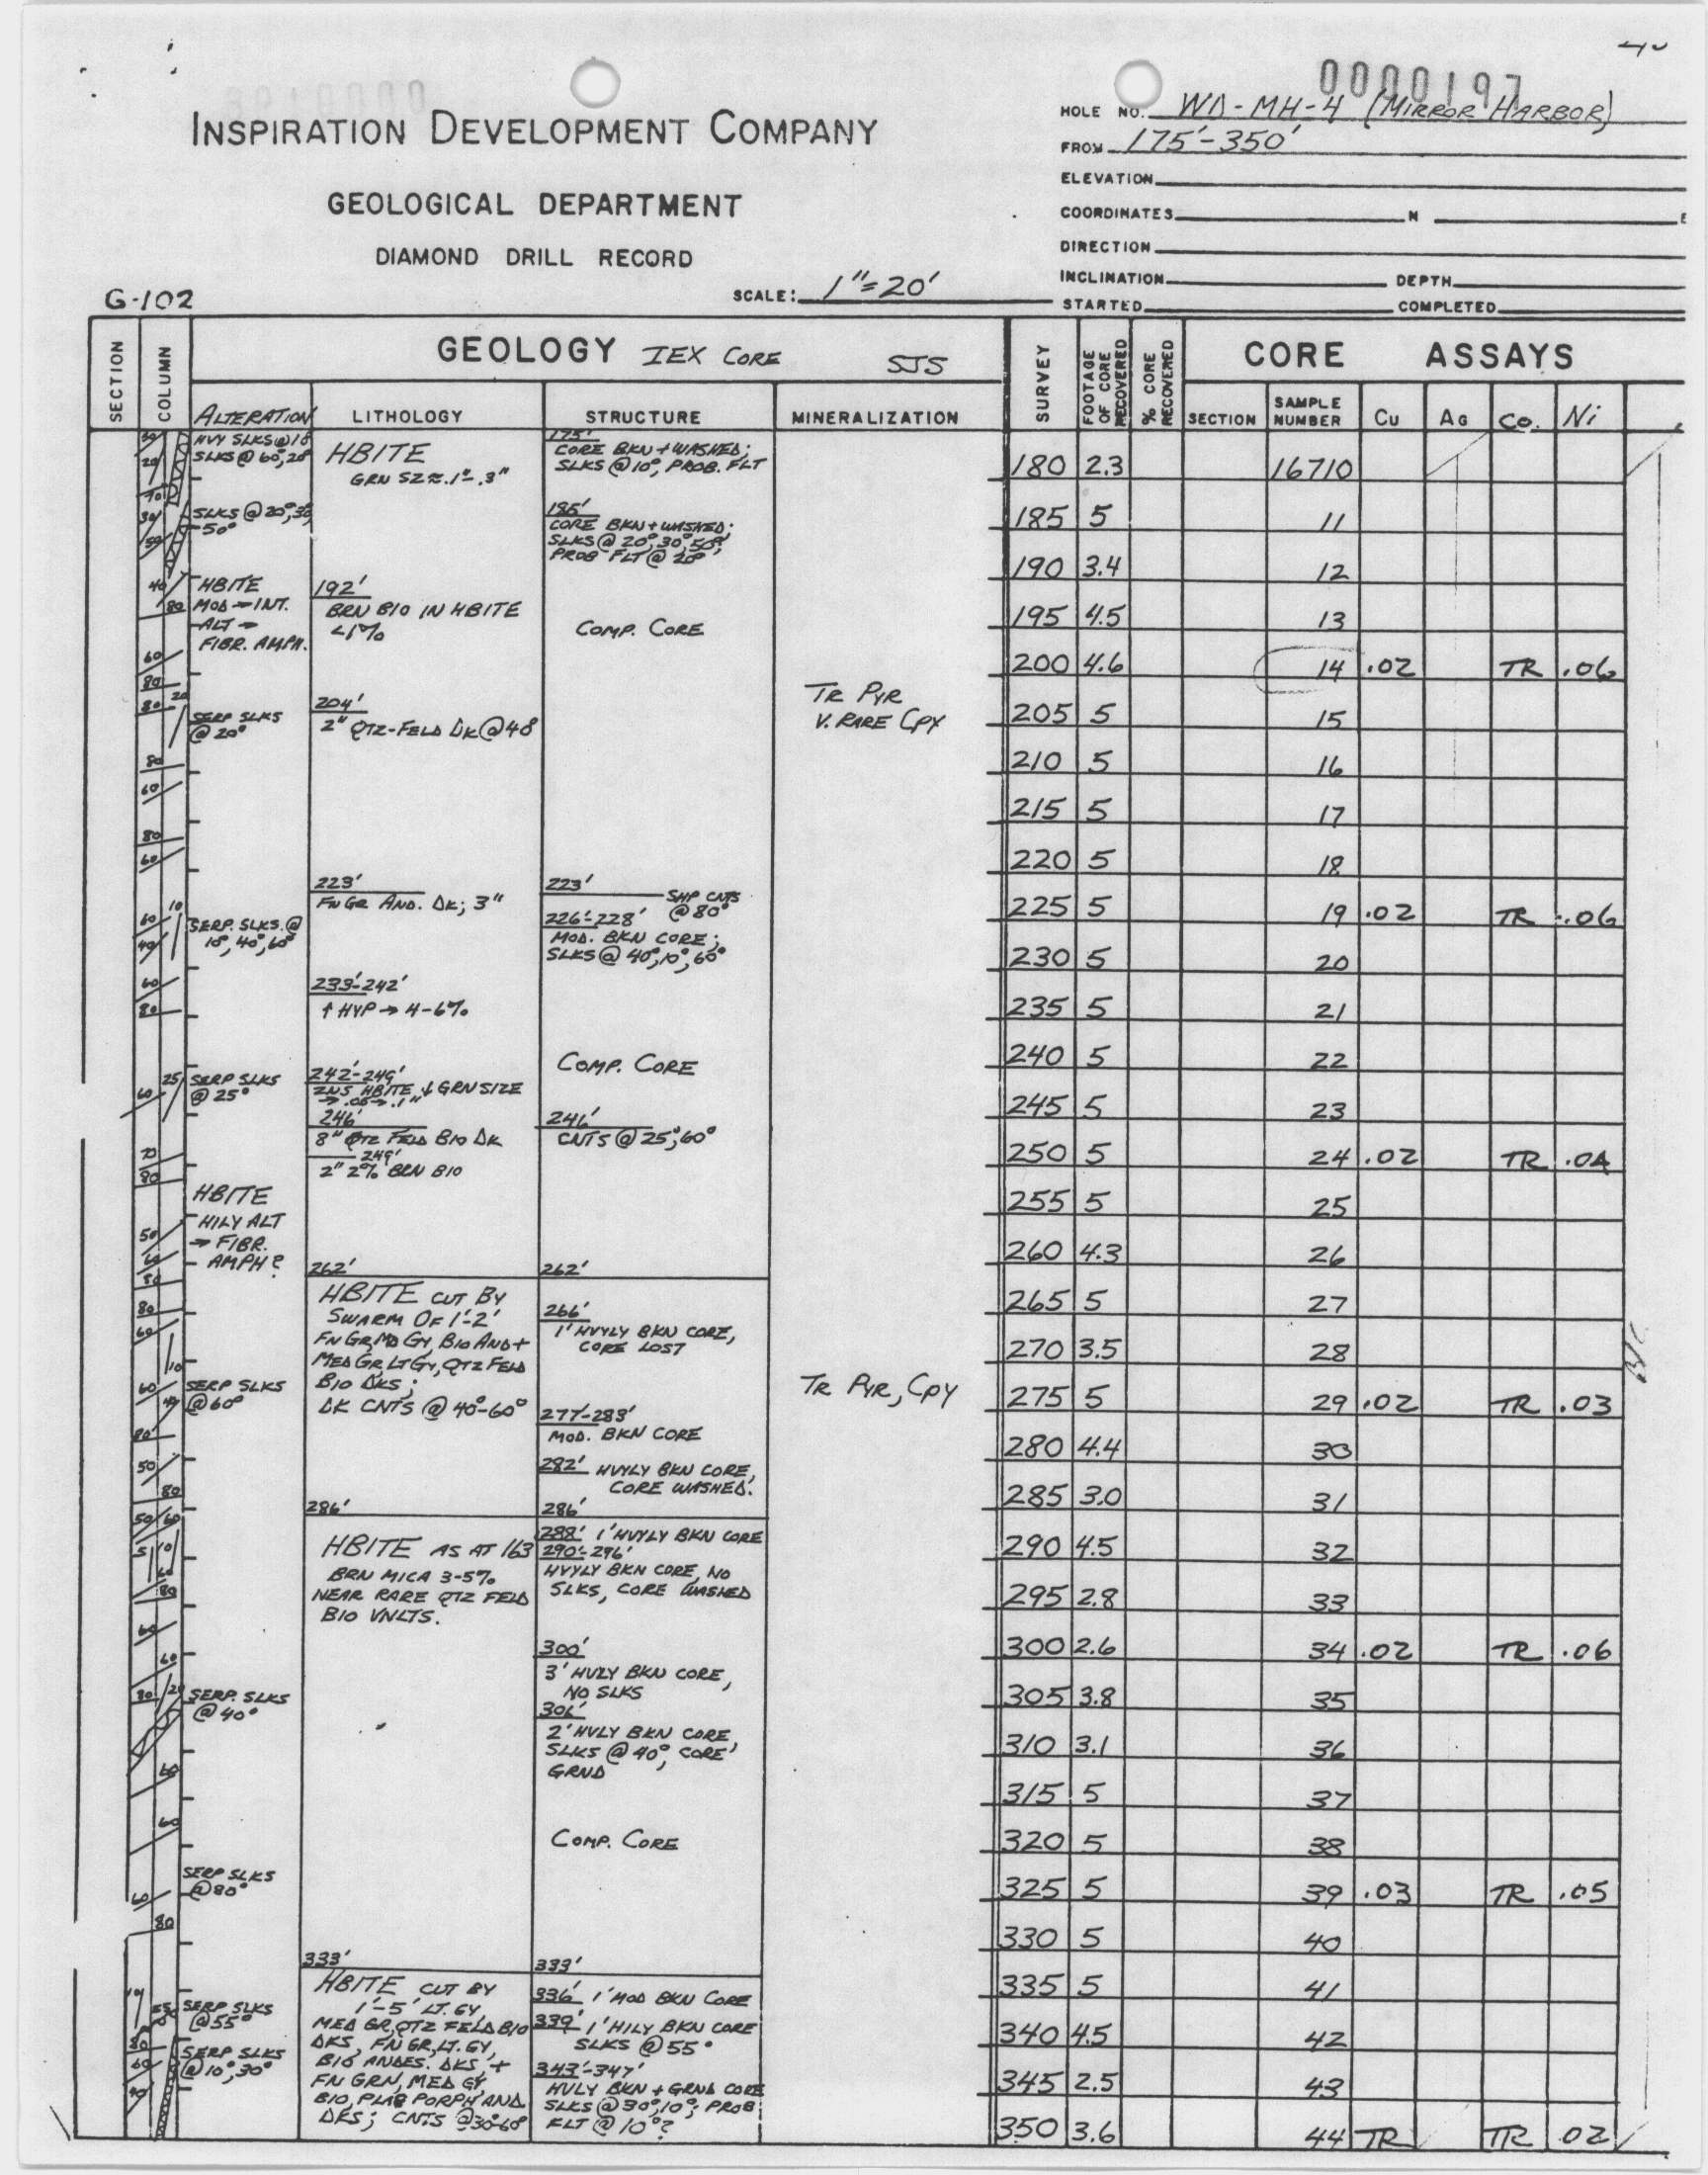 0000197
INSPIRATION DEVELOPMENT COMPANY
GEOLOGICAL DEPARTMENT
DIAMOND DRILL RECORD
G-102
SCALE: 1"=20'
HOLE NO. WD-MH-4 (MIRROR HARBOR)
FROM 175'-350'
ELEVATION
COORDINATES N E
DIRECTION
INCLINATION DEPTH
STARTED COMPLETED
SECTION
COLUMN
GEOLOGY IEX CORE SJS
ALTERATION
LITHOLOGY
STRUCTURE
MINERALIZATION
SURVEY
FOOTAGE OF CORE RECOVERED
% CORE RECOVERED
CORE ASSAYS
SECTION
SAMPLE NUMBER
Cu
AG
Co.
Ni
HVY SLKS @ 18
SLKS @ 60°, 20°
SLKS @ 20°, 30,
50°
HBITE
MOD → INT.
ALT →
FIBR. AMPH.
SERP SLKS
@ 20°
SERP. SLKS. @
10°, 40°, 60°
SERP SLKS
@ 25°
HBITE
HILY ALT
→ FIBR.
AMPH?
SERP SLKS
@ 60°
SERP. SLKS
@ 40°
SERP SLKS
@ 80°
SERP SLKS
@ 55°
SERP SLKS
@ 10°, 30°
HBITE
GRN SZ ≈ .1"-.3"
192'
BRN BIO IN HBITE
<1%
204'
2" QTZ-FELD DK @ 48
223'
FN GR AND. DK; 3"
233'-242'
↑ HYP → 4-6%
242'-249'
HBITE ↓ GRN SIZE
→ .05 → .1"
246'
8" QTZ FELD BIO DK
249'
2" 2% BRN BIO
262'
HBITE CUT BY
SWARM OF 1'-2'
FN GR, MD GY, BIO AND +
MED GR, LT GY, QTZ FELD
BIO DKS;
DK CNTS @ 40°-60°
286'
HBITE AS AT 163
BRN MICA 3-5%
NEAR RARE QTZ FELD
BIO VNLTS.
333'
HBITE CUT BY
1'-5' LT. GY,
MED GR, QTZ FELD BIO
DKS, FN GR, LT. GY,
BIO ANDES. DKS, +
FN GRN, MED GY,
BIO, PLAG PORPH AND.
DKS; CNTS @ 30°-60°
175'
CORE BKN + WASHED;
SLKS @ 10°, PROB. FLT
185'
CORE BKN + WASHED;
SLKS @ 20°, 30°, 50°;
PROB FLT @ 20°
COMP. CORE
223'
SHP CNTS
@ 80°
226'-228'
MOD. BKN CORE;
SLKS @ 40°, 10°, 60°
COMP. CORE
246'
CNTS @ 25°, 60°
262'
266'
1' HVYLY BKN CORE,
CORE LOST
277'-283'
MOD. BKN CORE
282' HVYLY BKN CORE,
CORE WASHED.
286'
288' 1' HVYLY BKN CORE
290'-296'
HVYLY BKN CORE, NO
SLKS, CORE WASHED
300'
3' HVLY BKN CORE,
NO SLKS
306'
2' HVLY BKN CORE,
SLKS @ 40°, CORE
GRND
COMP. CORE
333'
336' 1' MOD BKN CORE
339' 1' HILY BKN CORE
SLKS @ 55°
343'-347'
HVLY BKN + GRND CORE
SLKS @ 30°, 10°; PROB
FLT @ 10°?
TR PYR
V. RARE CPY
TR PYR, CPY
180 2.3 16710
185 5 11
190 3.4 12
195 4.5 13
200 4.6 14 .02 TR .06
205 5 15
210 5 16
215 5 17
220 5 18
225 5 19 .02 TR .06
230 5 20
235 5 21
240 5 22
245 5 23
250 5 24 .02 TR .04
255 5 25
260 4.3 26
265 5 27
270 3.5 28
275 5 29 .02 TR .03
280 4.4 30
285 3.0 31
290 4.5 32
295 2.8 33
300 2.6 34 .02 TR .06
305 3.8 35
310 3.1 36
315 5 37
320 5 38
325 5 39 .03 TR .05
330 5 40
335 5 41
340 4.5 42
345 2.5 43
350 3.6 44 TR TR .02